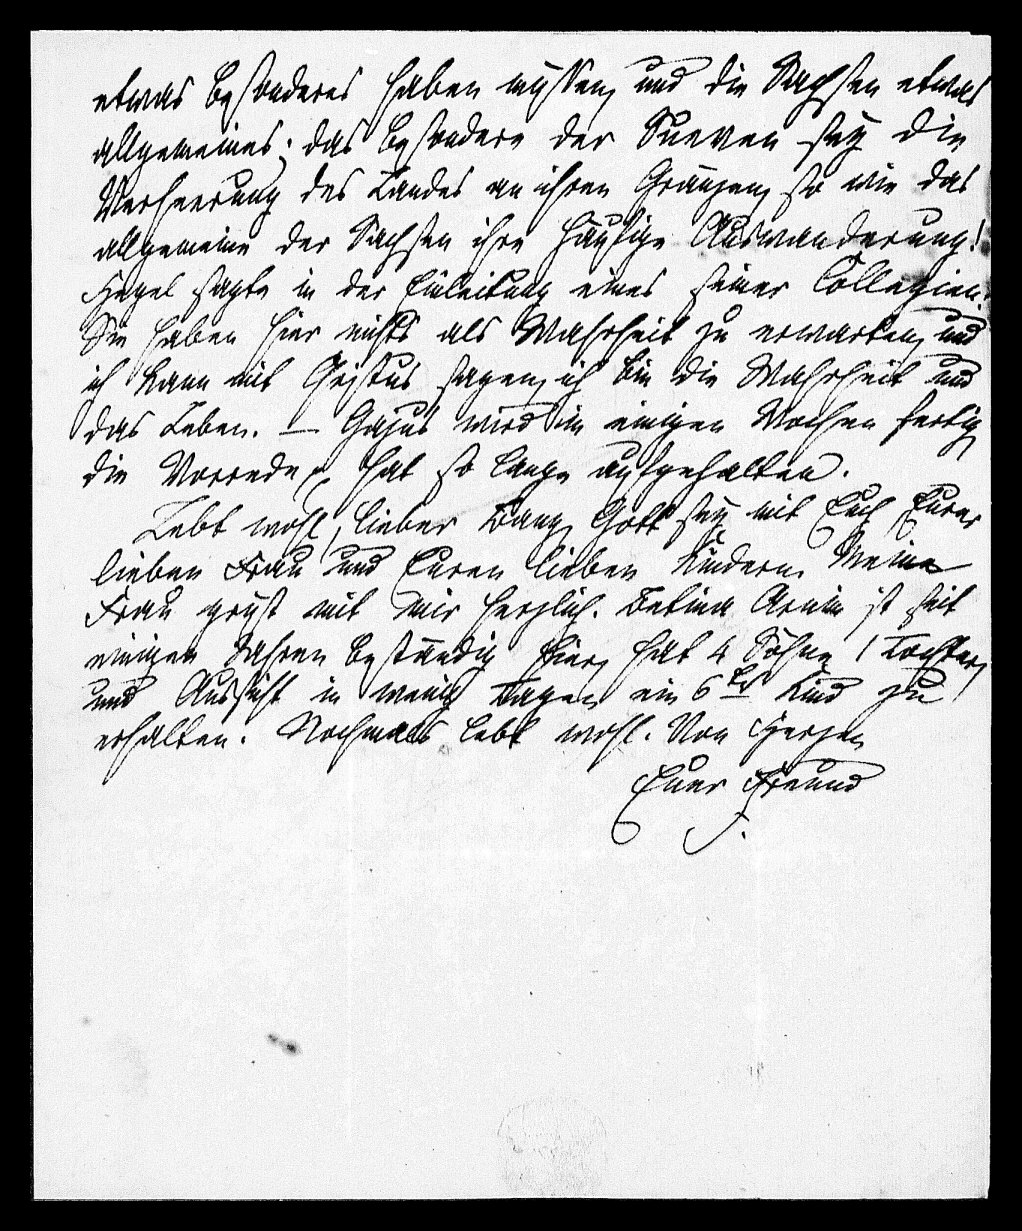 etwas besonderes haben müssen, und die Sachsen etwas
allgemeines; das besondere der Sueven sey die
Verheerung des Landes an ihren Gränzen, so wie das
allgemeine der Sachsen ihre häufige Auswanderung!
Hegel sagte in der Einleitung eines seiner Collegien:
Sie haben hier nichts als Wahrheit zu erwarten, und
ich kann mit Christus sagen, ich bin die Wahrheit und
das Leben. — Gajus wird in einigen Wochen fertig,
die Vorrede hat so lange aufgehalten.
Lebt wohl, lieber Bang, Gott sey mit Euch Eurer
lieben Frau und Euren lieben Kindern. Meine
Frau grüßt mit mir herzlich. Betina Arnim ist seit
einigen Jahren beständig hier, hat 4 Söhne, 1 Tochter,
und Aussicht in wenig Tagen ein 6tes Kind zu
erhalten. Nochmals lebt wohl. Von Herzen
Euer Freund
S.